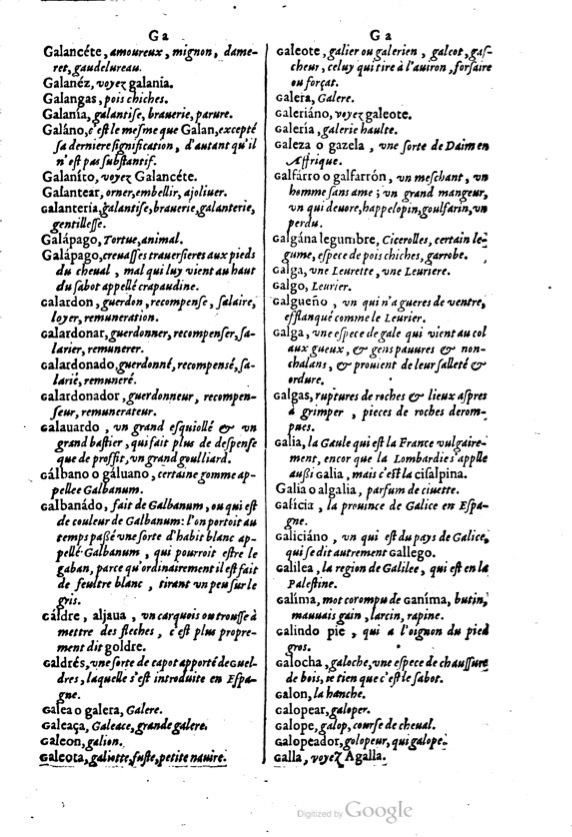 Ga
Galancéte, amoureux, mignon, dame-
ret, gaudelureau.
Galanéz, voyez galania.
Galangas, pois chiches.
Galanía, galantise, brauerie, parure.
Galáno, c'est le mesme que Galan, excepté
sa derniere signification, d'autant qu'il
n'est pas substantif.
Galaníto, voyez Galancéte.
Galantear, orner, embellir, ajoliuer.
Galantería, galantise, brauerie, galanterie,
gentillesse.
Galápago, Tortue, animal.
Galápago, creuasses trauersieres aux pieds
du cheual, mal qui luy vient au haut
du sabot appellé crapaudine.
Galardon, guerdon, recompense, salaire,
loyer, remuneration.
Galardonar, guerdonner, recompenser, sa-
larier, remunerer.
Galardonado, guerdonné, recompensé, sa-
larié, remuneré.
Galardonador, guerdonneur, recompen-
seur, remunerateur.
Galauardo, un grand esquiollé & un
grand bastier, qui fait plus de despense
que de proffit, un grand goulliard.
Gálbano o gáluano, certaine gomme ap-
pellee Galbanum.
Galbanádo, fait de Galbanum, ou qui est
de couleur de Galbanum: l'on portoit au
temps passé une sorte d'habit blanc ap-
pellé Galbanum, qui pourroit estre le
gaban, parce qu'ordinairement il est fait
de feultre blanc, tirant un peu sur le
gris.
Gáldre, aljaua, un carquois ou trousse à
mettre des fleches, c'est plus propre-
ment dit goldre.
Galdrés, une sorte de capot apporté de Guel-
dres, laquelle s'est introduite en Espa-
gne.
Galea o galera, Galere.
Galeaça, Galeace, grande galere.
Galeon, galion.
Galeota, galiotte, fuste, petite nauire.
Ga
Galeote, galier ou galerien, galeot, gas-
cheur, celuy qui tire à l'auiron, forsaire
ou forçat.
Galera, Galere.
Galeriáno, voyez galeote.
Galería, galerie haulte.
Galeza o gazela, une sorte de Daim en
Affrique.
Galfárro o galfarrón, un meschant, un
homme sans ame; un grand mangeur,
un qui deuore, happelopin, goulfarin, un
perdu.
Galgána legumbre, Cicerolles, certain le-
gume, espece de pois chiches, garrobe.
Galga, une Leurette, une Leuriere.
Galgo, Leurier.
Galgueño, un qui n'a gueres de ventre,
efflanqué comme le Leurier.
Galga, une espece de gale qui vient au col
aux gueux, & gens pauures & non-
chalans, & prouient de leur salleté &
ordure.
Galgas, ruptures de roches & lieux aspres
à grimper, pieces de roches derom-
pues.
Galia, la Gaule qui est la France vulgaire-
ment, encor que la Lombardie s'aplle
aussi Galia, mais c'est la cisalpina.
Galia o algalia, parfum de ciuette.
Galicia, la prouince de Galice en Espa-
gne.
Galiciáno, un qui est du pays de Galice,
qui se dit autrement gallego.
Galilea, la region de Galilee, qui est en la
Palestine.
Galíma, mot corompu de Ganíma, butin,
mauuais gain, larcin, rapine.
Galindo pie, qui a l'oignon du pied
gros.
Galocha, galoche, une espece de chaussure
de bois, ie tien que c'est le sabot.
Galon, la hanche.
Galopear, galoper.
Galope, galop, course de cheual.
Galopeador, golopeur, qui galope.
Galla, voyez Agalla.
Digitized by Google